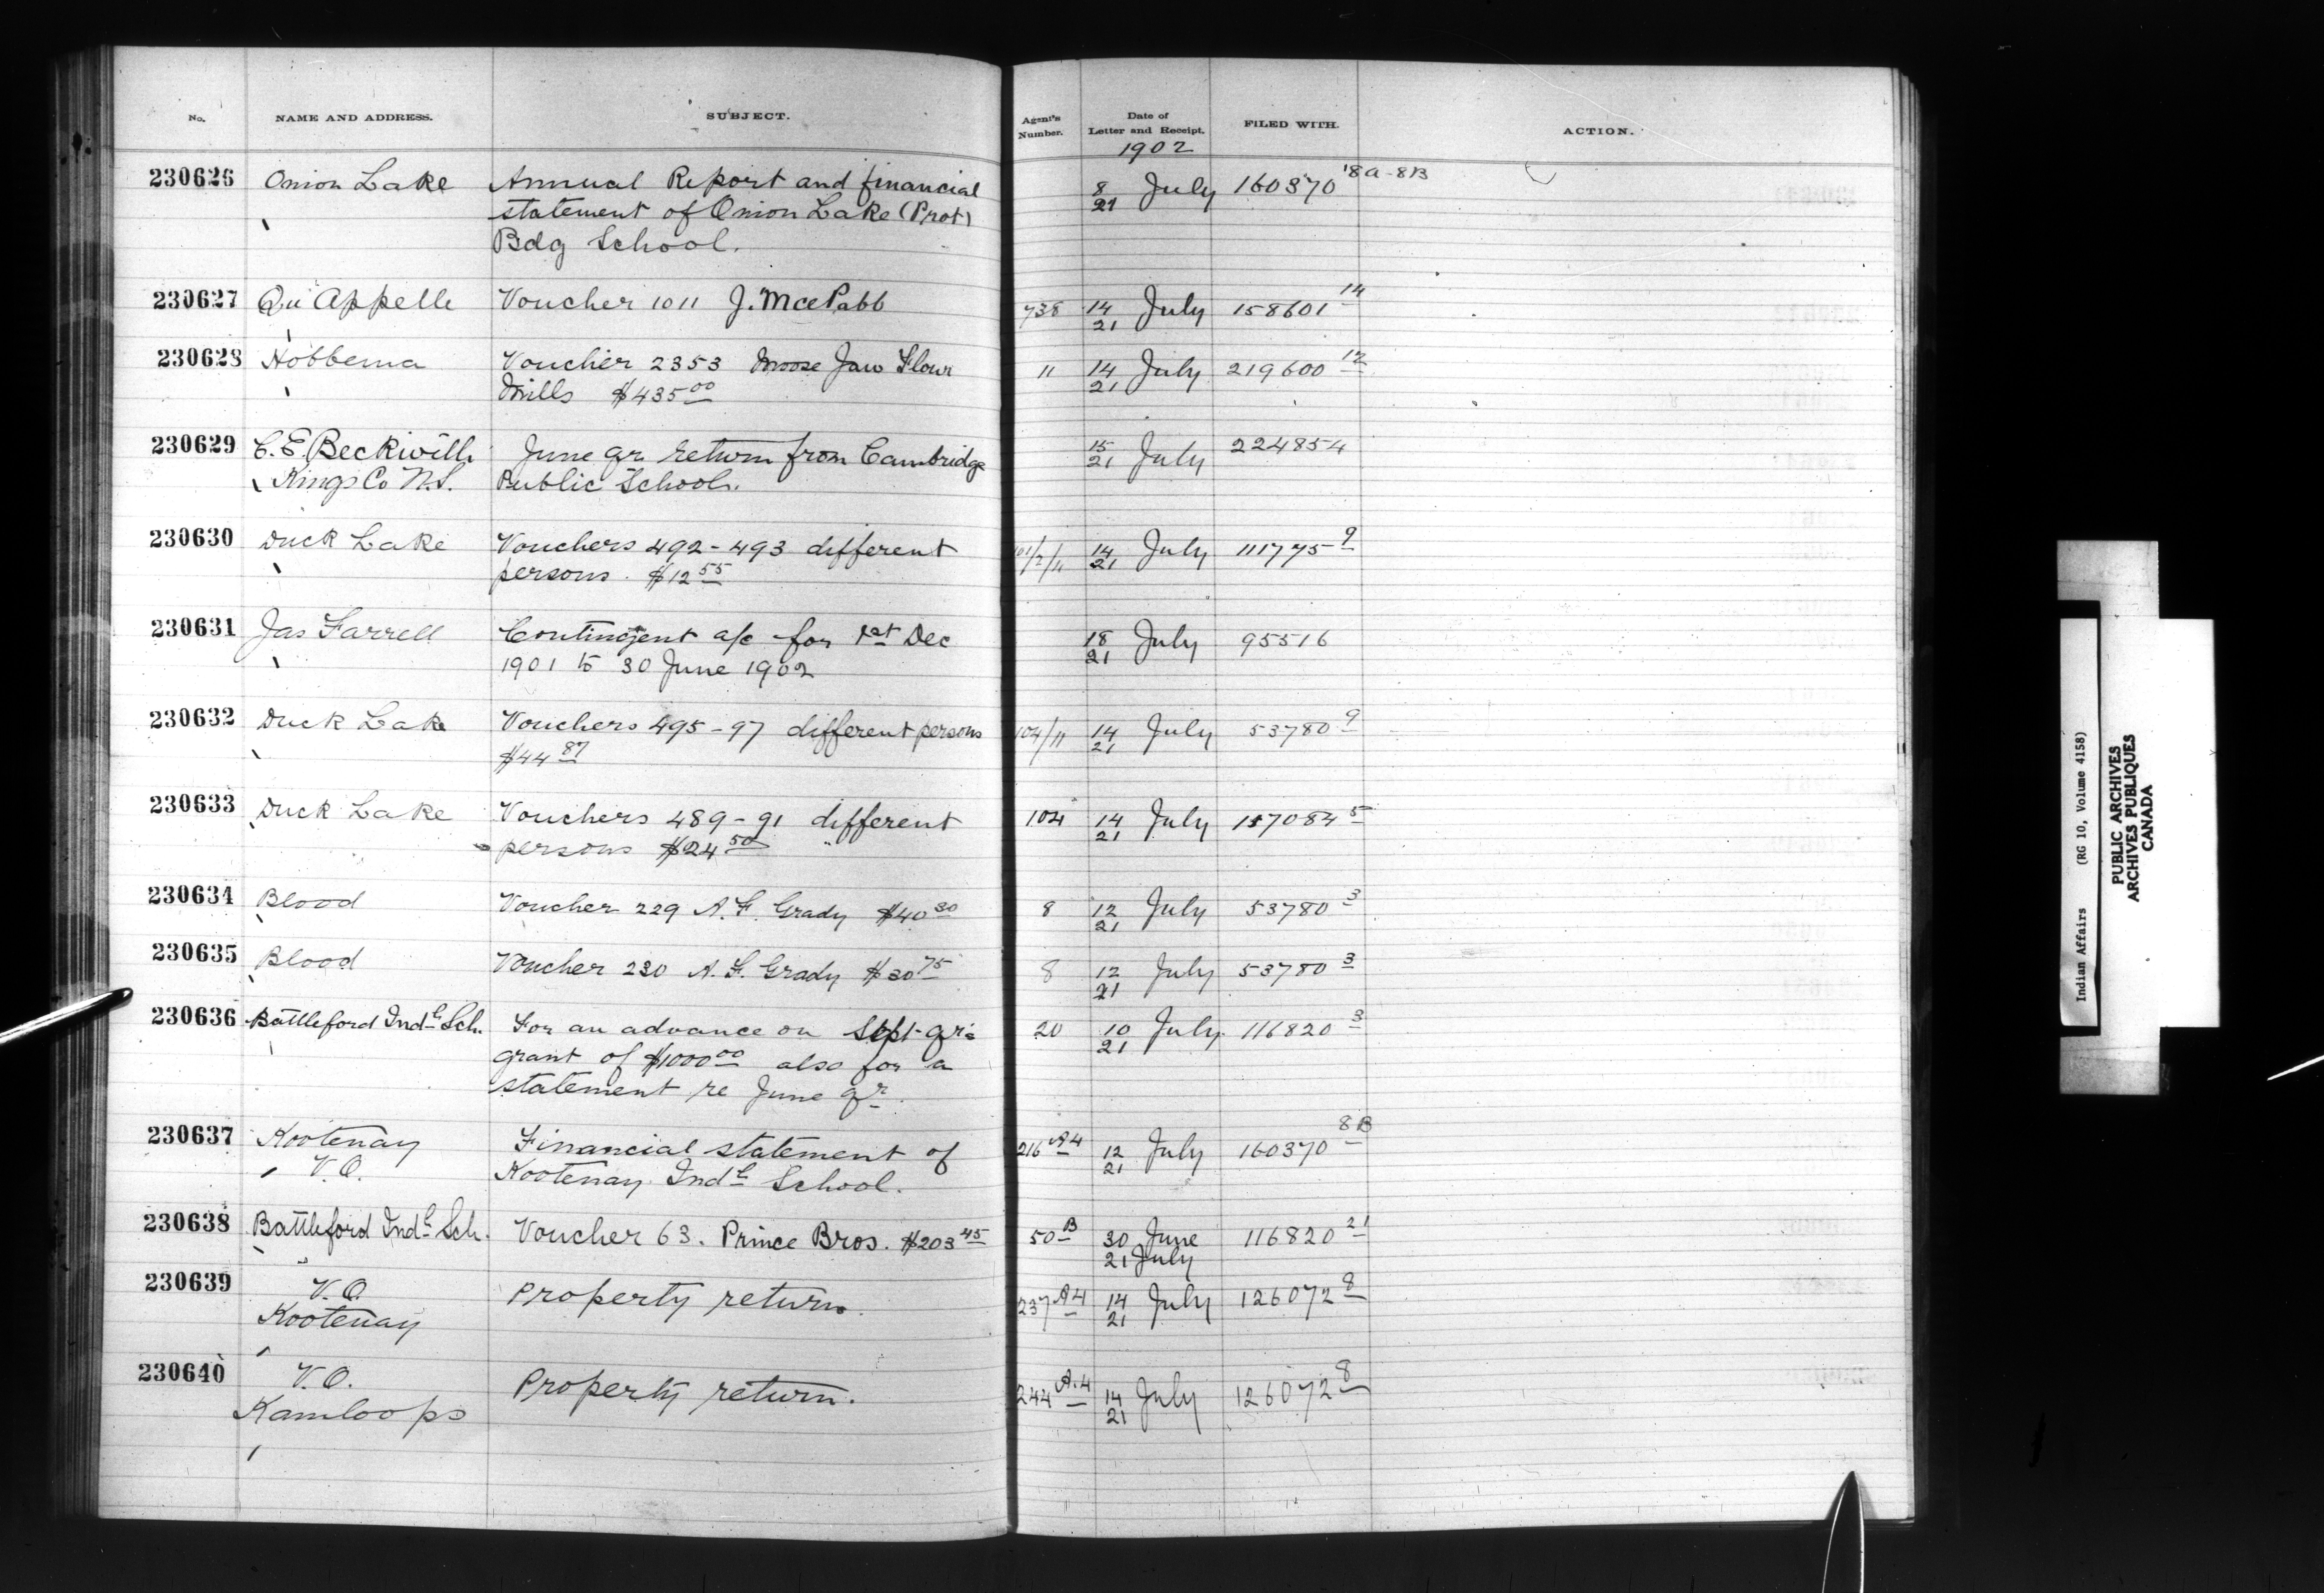 No. NAME AND ADDRESS. SUBJECT. Agent's Number. Date of Letter and Receipt. FILED WITH. ACTION.
1902
230626 Onion Lake Annual Report and financial 8 July 160370 18A-8B
statement of Onion Lake (Prot) 21
Bdg School.
230627 Qu'Appelle Voucher 1011 J. 738 14 July 158601 14
21
230628 Hobbema Voucher 2353 Moose Jaw Flour 11 14 July 219600 12
Mills $435 00 21
230629 C. E. Beckwith June qr return from Cambridge 15 July 224854
Kings Co N.S. Public School. 21
230630 Duck Lake Vouchers 492-493 different 14 July 111775 9
persons. $12 55 21
230631 Jas Farrell Contingent a/c for 1st Dec 18 July 95516
1901 to 30 June 1902 21
230632 Duck Lake Vouchers 495-97 different persons 104/11 14 July 53780 9
$44 87 21
230633 Duck Lake Vouchers 489-91 different 104 14 July 157084 5
persons $24 50 21
230634 Blood Voucher 229 A. F. Grady $40 30 8 12 July 53780 3
21
230635 Blood Voucher 230 A. F. Grady $30 75 8 12 July 53780 3
21
230636 Battleford Indl Sch. For an advance on Sept qrs 20 10 July 116820 3
grant of $1000 00 also for a 21
statement re June qr.
230637 Kootenay Financial statement of 216 A4 12 July 160370 8B
V.O. Kootenay Indl School. 21
230638 Battleford Indl Sch. Voucher 63. Prince Bros. $203 45 50 B 30 June 116820 21
21 July
230639 V.O. Property return. 237 A4 14 July 126072 8
Kootenay 21
230640 V.O. Property return. 244 A.4 14 July 126072 8
Kamloops 21
Indian Affairs (RG 10, Volume 4158)
PUBLIC ARCHIVES
ARCHIVES PUBLIQUES
CANADA